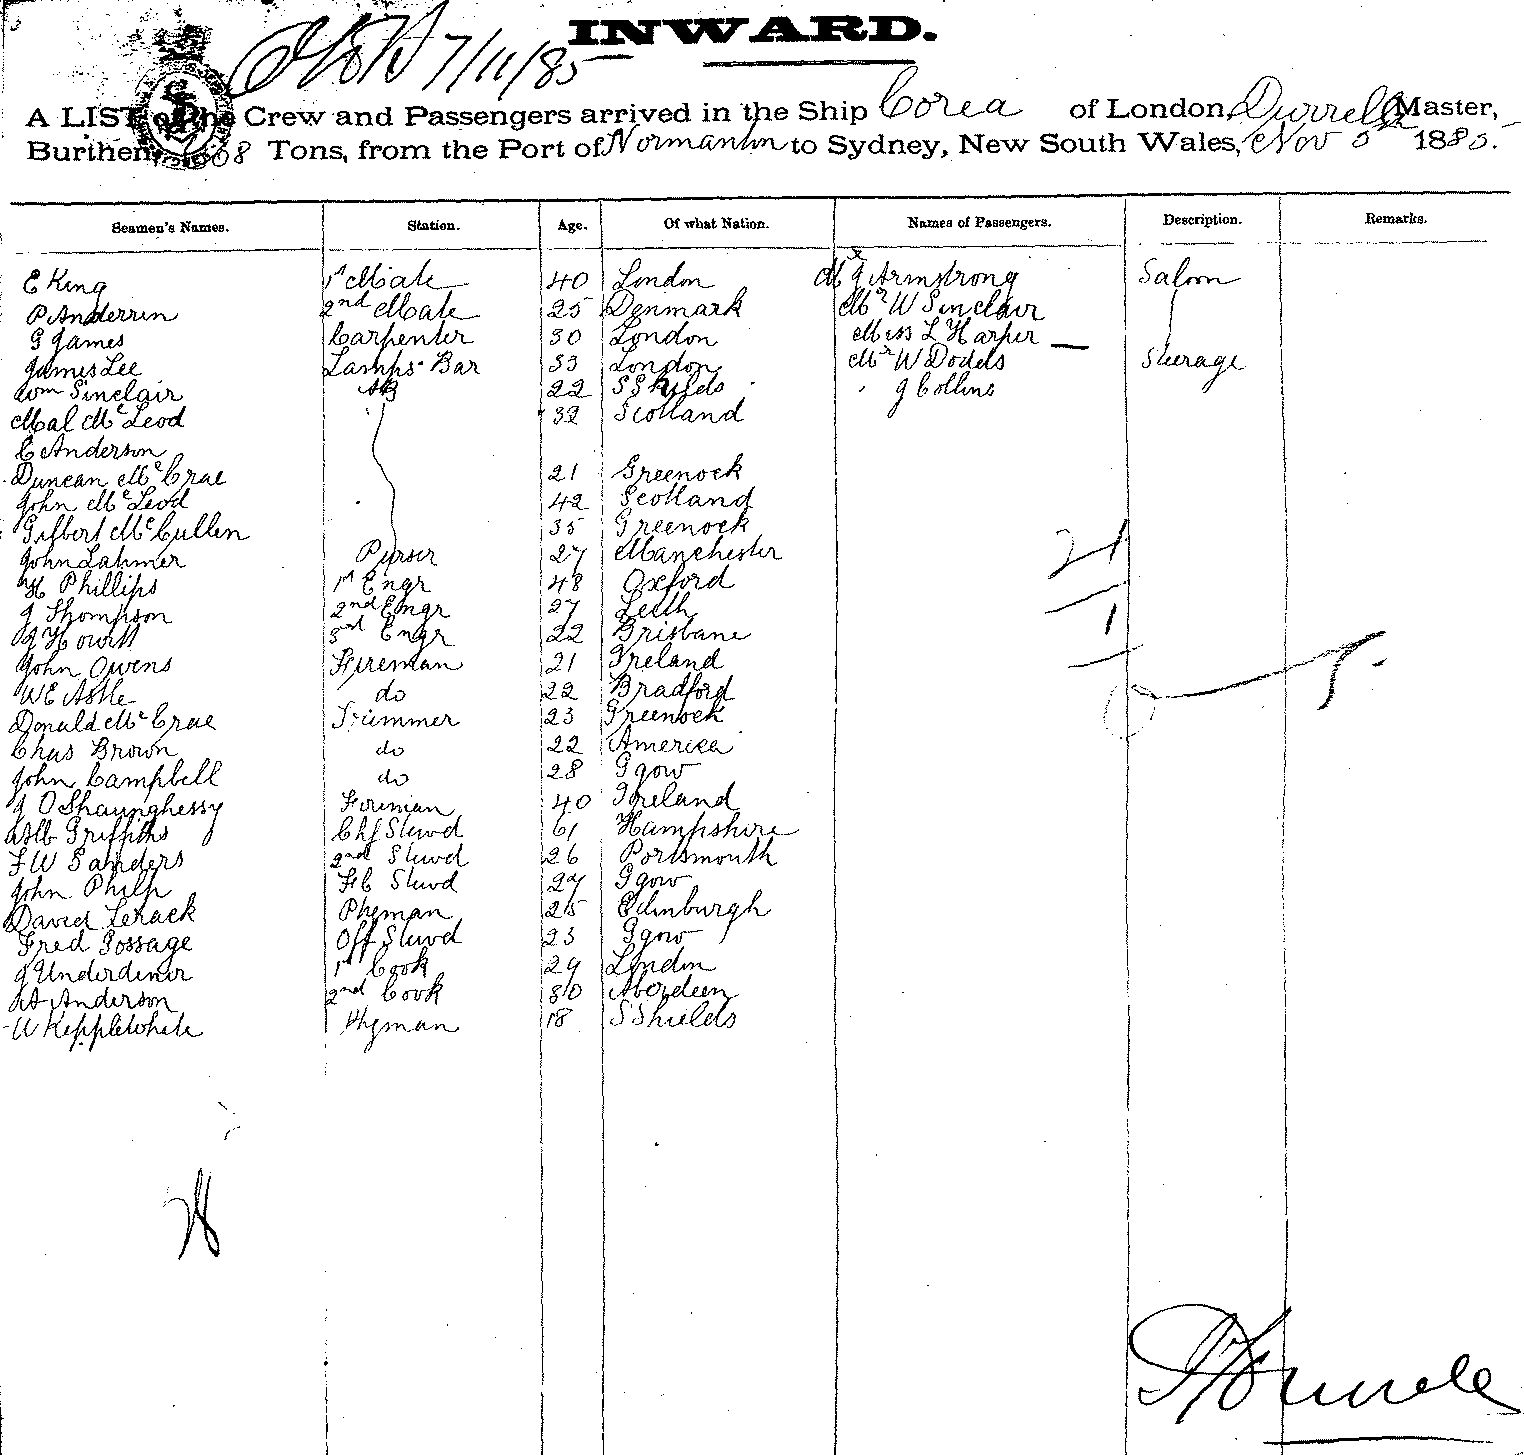 INWARD.
7/11/85
A LIST of the Crew and Passengers arrived in the Ship Corea of London, Durrell Master,
Burthen, Tons, from the Port of Normanton to Sydney, New South Wales, Nov 5 1885.
Seamen's Names. Station. Age. Of what Nation. Names of Passengers. Description. Remarks.
E King 1st Mate 40 London Armstrong Saloon
P Anderren 2nd Mate 25 Denmark Mr W Sinclair
G James Carpenter 30 London Miss L Harper
James Lee Lamps Bar 33 London Mr W Dodds Steerage
Wm Sinclair AB 22 S Shields J Collins
Mal McLeod 32 Scotland
C Anderson
Duncan McCrae 21 Greenock
John McLeod 42 Scotland
Gilbert McCullen 35 Greenock
John Latimer Purser 27 Manchester
H Phillips 1st Engr 48 Oxford
J Thompson 2nd Engr 27 Leith
J Howitt 3rd Engr 22 Brisbane
John Owens Fireman 21 Ireland
W E Astle do 22 Bradford
Donald McCrae Trimmer 23 Greenock
Chas Brown do 22 America
John Campbell do 28 Ggow
J O Shaunghessy Fireman 40 Ireland
Alb Griffiths Chf Stwd 61 Hampshire
F W Sanders 2nd Stwd 26 Portsmouth
John Philp F C Stwd 27 Ggow
David Lerack Phyman 25 Edinburgh
Fred Gossage Off Stwd 23 Ggow
J Underdiner 1st Cook 29 London
A Anderson 2nd Cook 30 Aberdeen
W Kepplewhite Phyman 18 S Shields